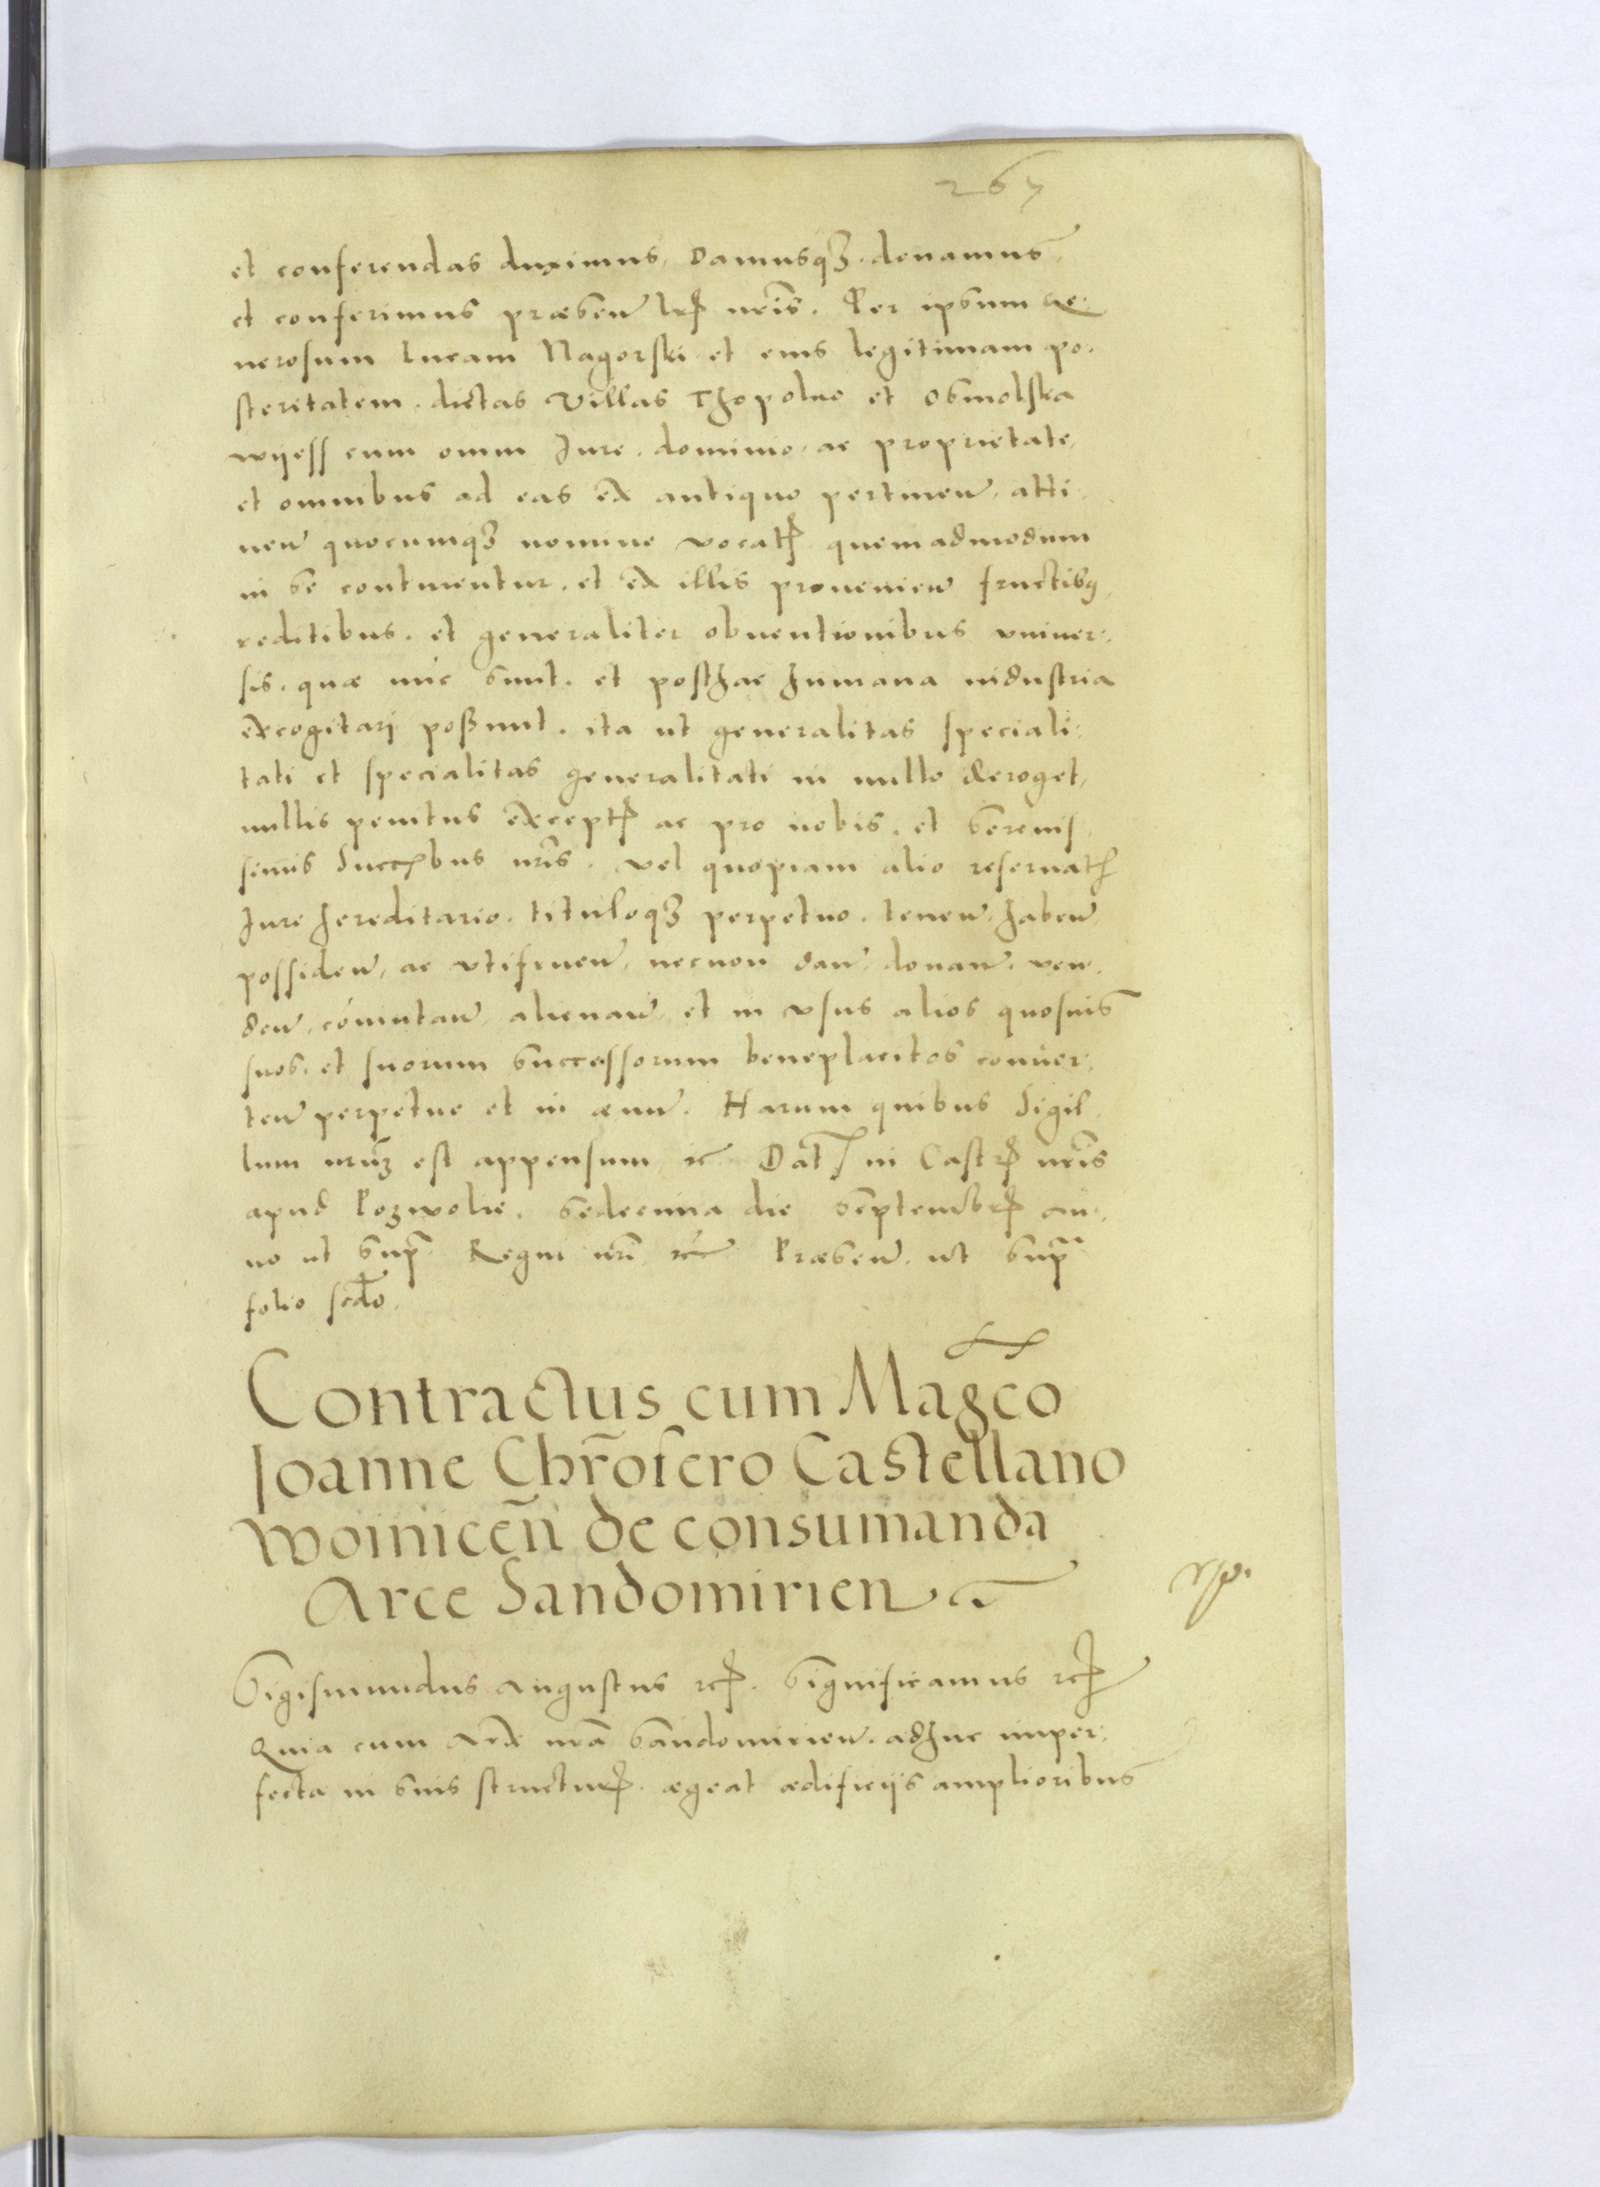 267
et conferendas duximus, Damusqȝ donamus
et conferimus præsen lrꝭ nris. Per ipsum Ge:
nerosum Lucam Nagorski et eius legitimam po.
steritatem. dictas Villas Thopolno et Osmolska
wyess cum omni Jure. dominio. ac proprietate,
et omnibus ad eas ex antiquo pertinen, atti.
nen quocumqȝ nomine vocatꝭ quemadmodum
in se continentur. et ex illis provenien fructibꝰ,
reditibus. et generaliter obuentionibus vniuer:
sis. quæ nūc sunt. et posthac humana industria
excogitari possunt. ita ut generalitas speciali:
tati et specialitas generalitati in nullo deroget,
nullis penitus exceptꝭ ac pro nobis. et Serenis.
simis Succꝭbus nris. vel quopiam alio reseruatꝭ
Jure hereditario. tituloqȝ perpetuo. tenen. haben
possiden, ac vtifruen, necnon dan. donan. ven.
den, cōmutan, alienan, et in vsus alios quosuis
suos. et suorum successorum beneplacitos conuer:
ten perpetue et in æuu. Harum quibus Sigil.
lum nrūȝ est appensum, rc Dat in Castrꝭ nris
apud Pozwolie. Sedecima die Septembrꝭ an:
no ut supra Regni nri rc Præsen. ut supra
folio scdo.
Contractus cum Magco
Joanne Chrōfero Castellano
Woinicen̄ de consumanda
Arce Sandomirien
Sigismundus Augustus rcꝭ. Significamus rcꝭ
Quia cum Arx nrā Sandomirien. adhuc imper:
fecta in suis structurꝭ. ægeat ædificijs amplioribus